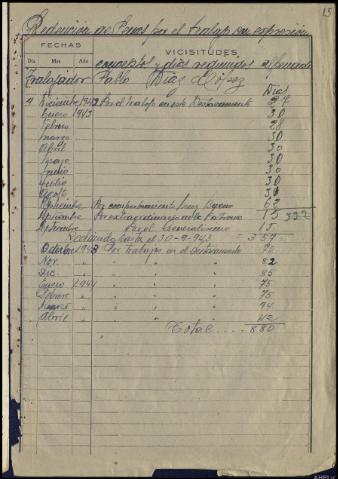 15
Redención de Penas por el trabajo con expresión
FECHAS VICISITUDES
Día Mes Año conceptos y días redimidos el penado
Trabajador Pablo Díaz López
Días
Diciembre 1942 Por el trabajo en este Destacamento 27
Enero 1943 30
Febrero 28
Marzo 30
Abril 30
Mayo 30
Junio 30
Julio 30
Agosto 30
Por comportamiento muy bueno 62
Por extraordinario de la 15 327
Por el Generalísimo 15
Redimido hasta el 30-9-943 357
Octubre 1943 Por trabajos en el Destacamento
Nov. " " " 82
Dic. " " " 85
Enero 1944 " " " 75
Febrero " " " 75
Marzo " " " 94
Abril " " " 42
Total.... 880